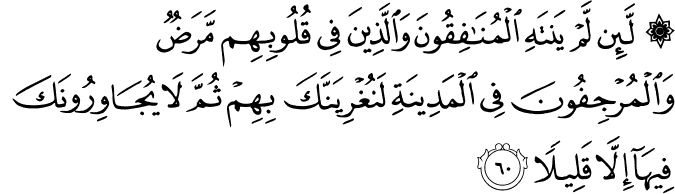 ۞ لَّئِن لَّمْ يَنتَهِ ٱلْمُنَـٰفِقُونَ وَٱلَّذِينَ فِى قُلُوبِهِم مَّرَضٌ
وَٱلْمُرْجِفُونَ فِى ٱلْمَدِينَةِ لَنُغْرِيَنَّكَ بِهِمْ ثُمَّ لَا يُجَاوِرُونَكَ
فِيهَآ إِلَّا قَلِيلًا ٦٠